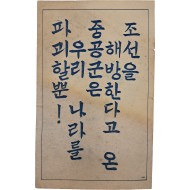 조선을
해방한다고 온
중공군은
우리 나라를
파괴할뿐!